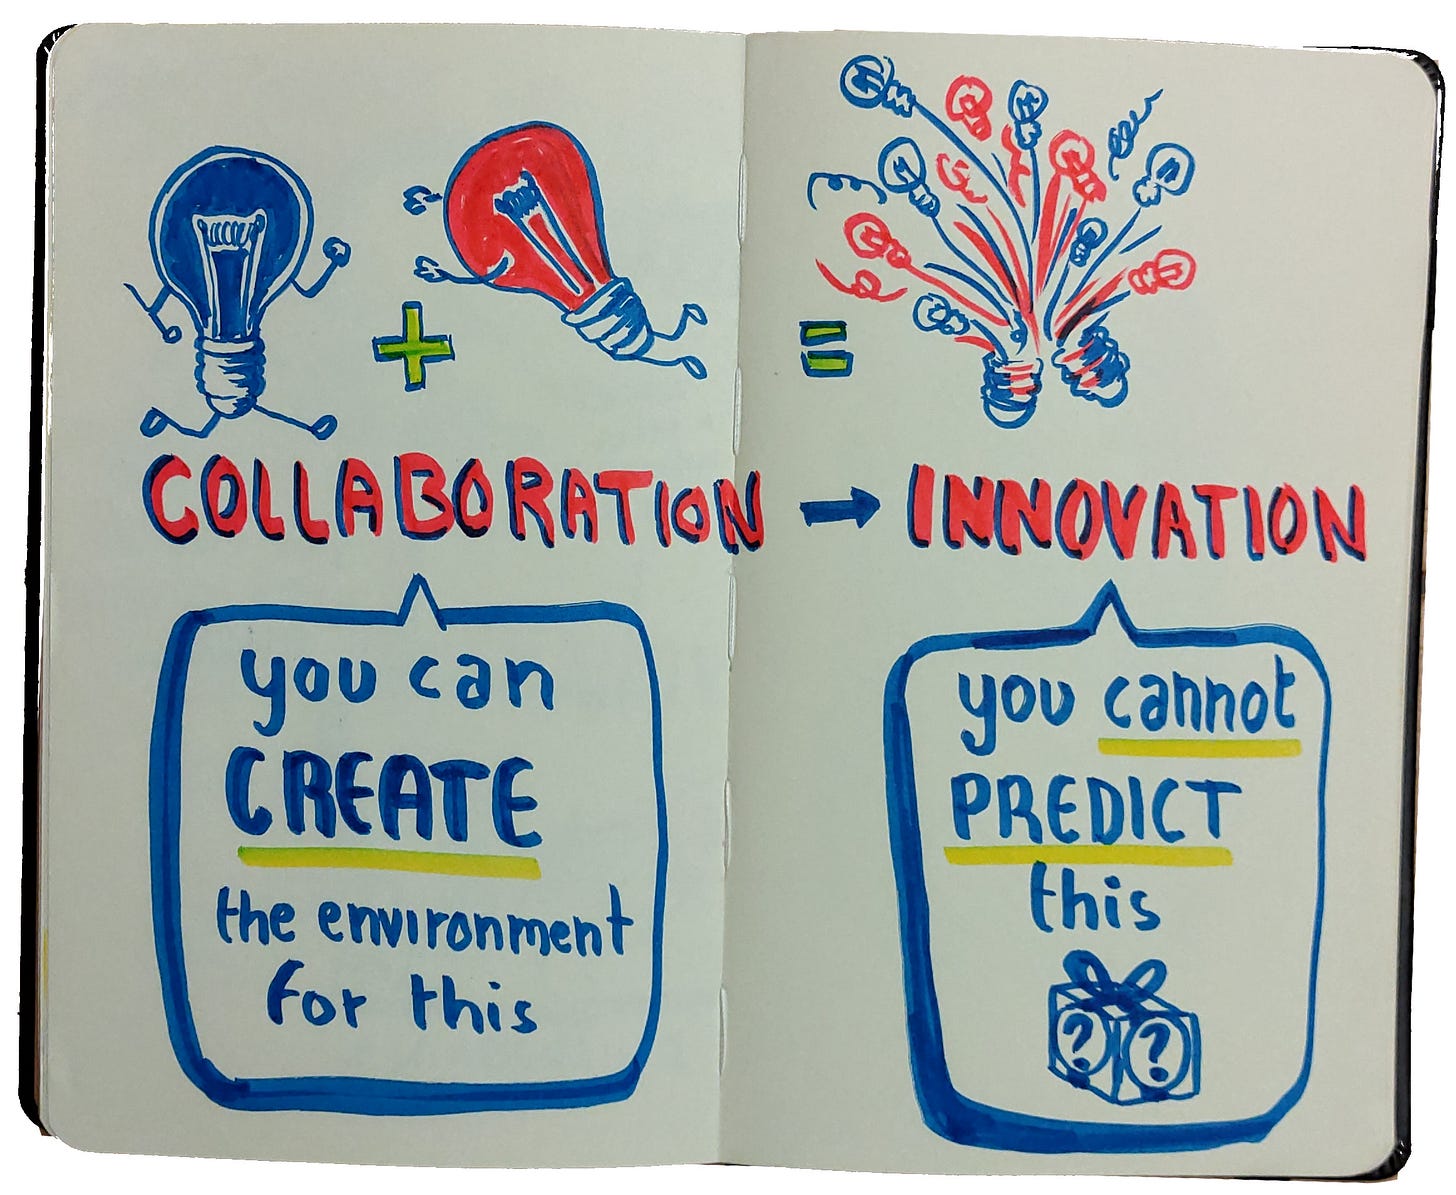 + =
COLLABORATION → INNOVATION
you can
CREATE
the environment
for this
you cannot
PREDICT
this
? ?